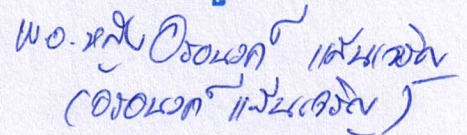 พ.อ.หญิง อรอนงค์ แสนเจริญ
(อรอนงค์ แสนเจริญ)